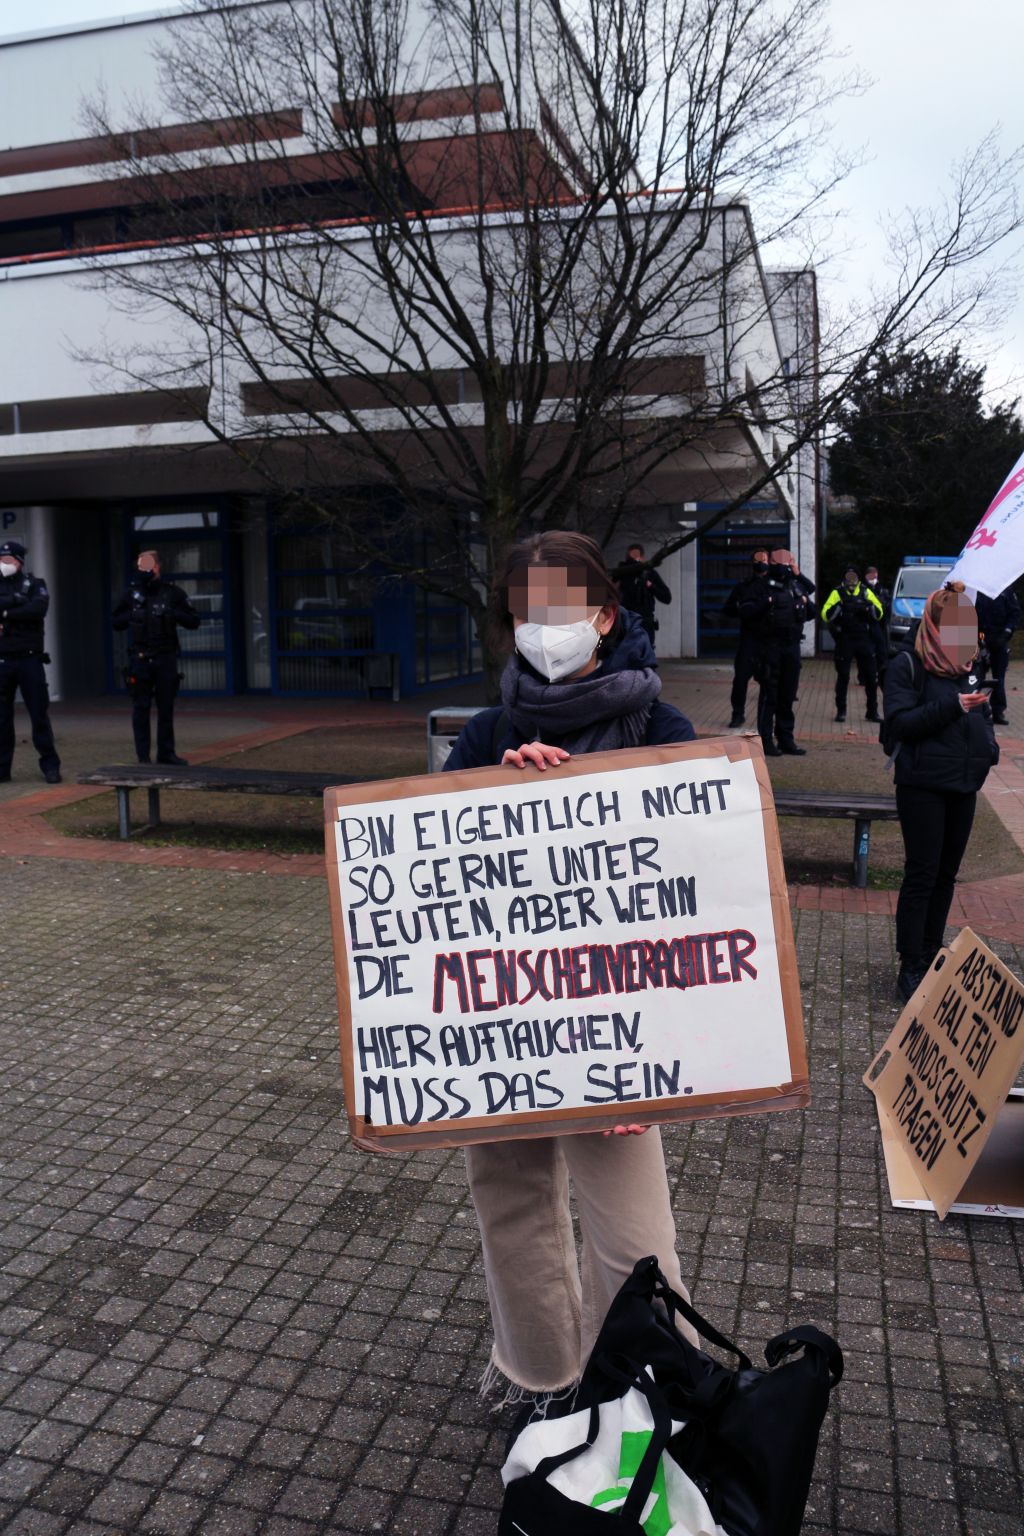 P
BIN EIGENTLICH NICHT
SO GERNE UNTER
LEUTEN, ABER WENN
DIE MENSCHENVERACHTER
HIER AUFTAUCHEN,
MUSS DAS SEIN.
ABSTAND
HALTEN
MUNDSCHUTZ
TRAGEN